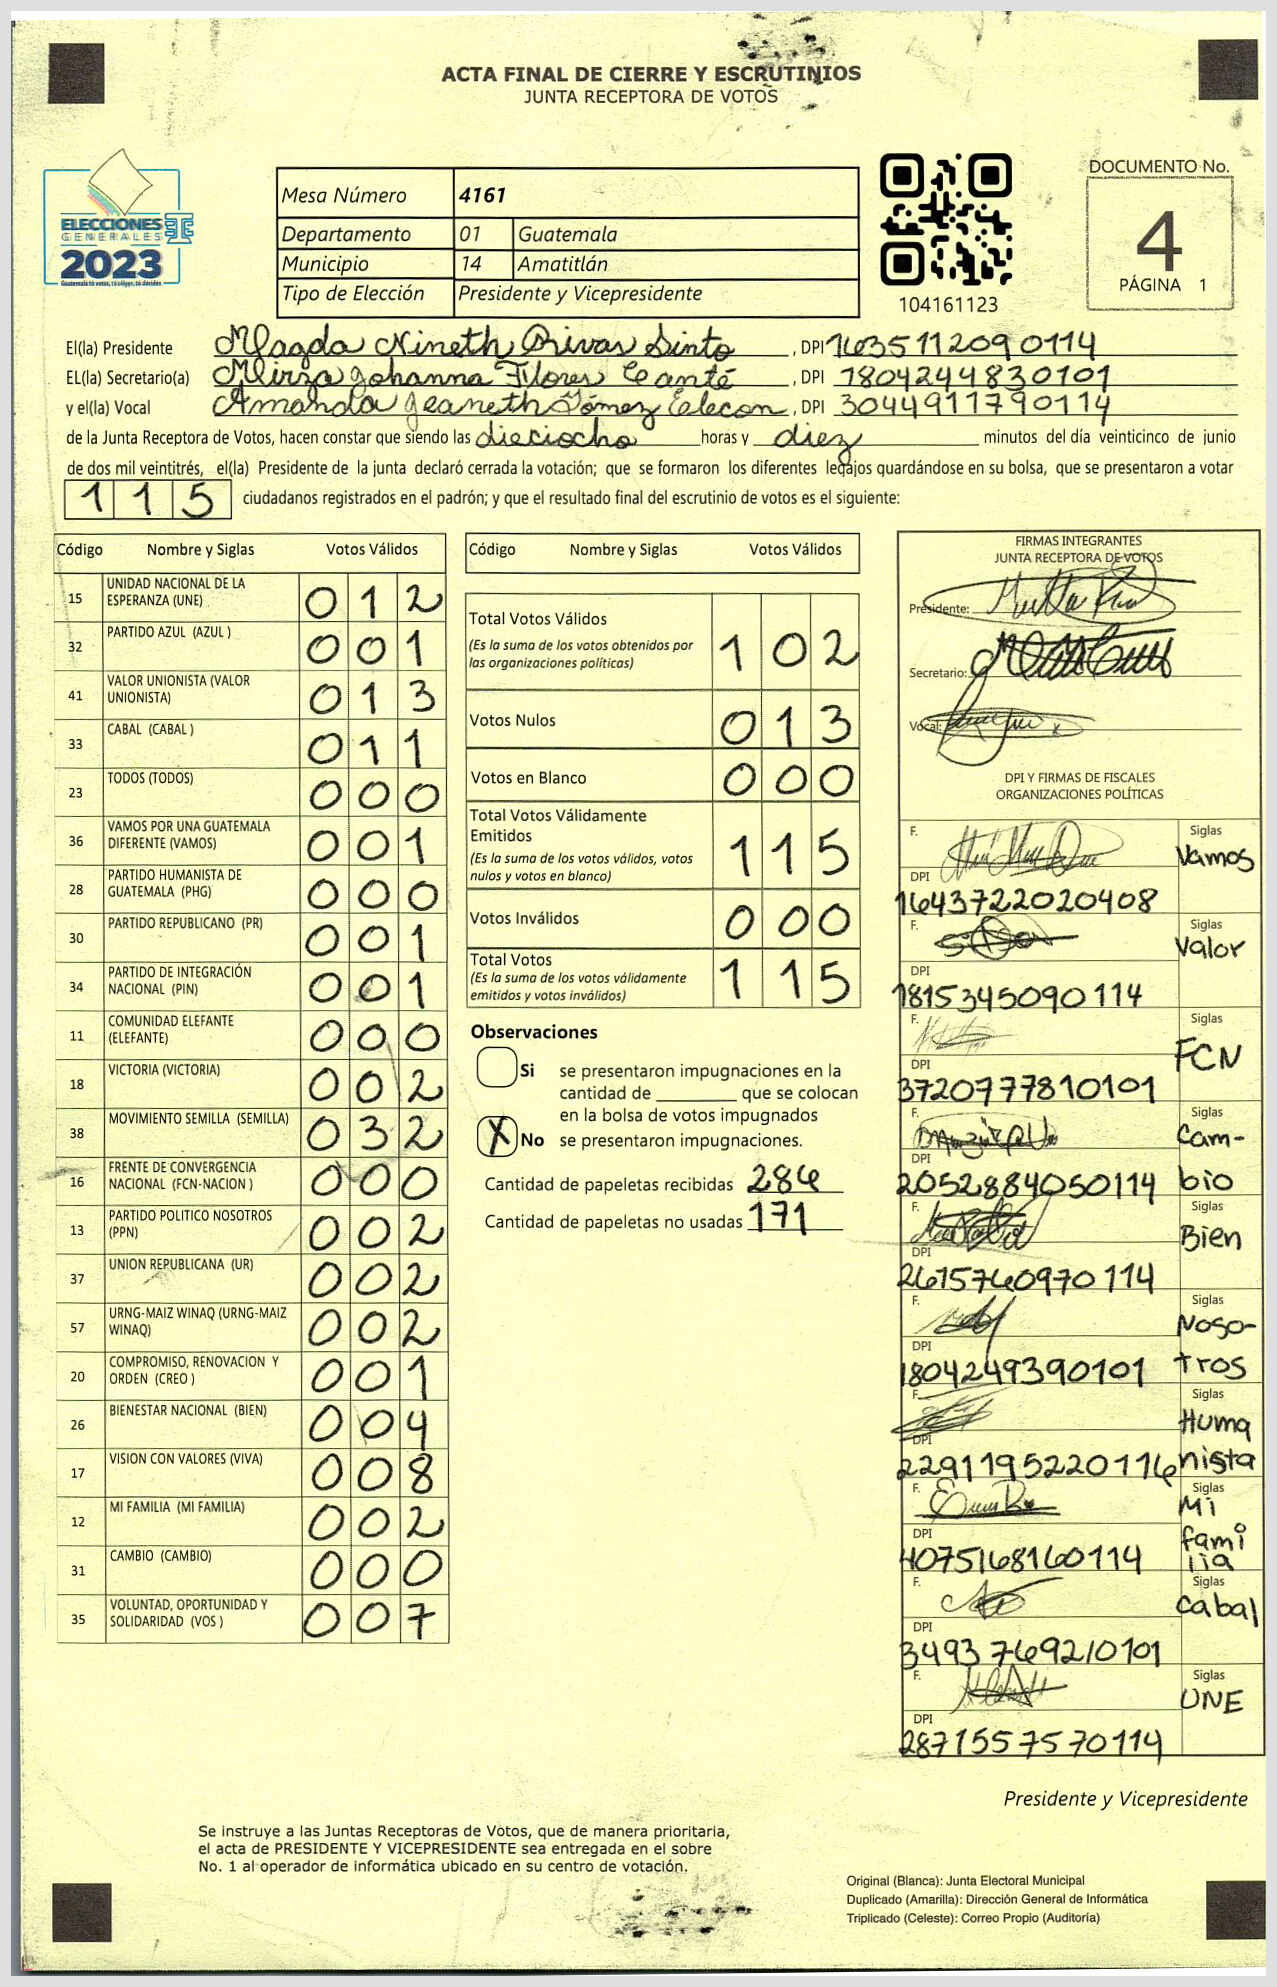 ACTA FINAL DE CIERRE Y ESCRUTINIOS
JUNTA RECEPTORA DE VOTOS
ELECCIONES
GENERALES
2023
Guatemala tú votas, tú eliges, tú decides
Mesa Número 4161
Departamento 01 Guatemala
Municipio 14 Amatitlán
Tipo de Elección Presidente y Vicepresidente
104161123
DOCUMENTO No.
4
PÁGINA 1
El(la) Presidente Magda Nineth Rivas Sinto, DPI 1635112090114
EL(la) Secretario(a) Mirza Johanna Flores Canté, DPI 1804244830101
y el(la) Vocal Amanda Jeaneth Gómez Elecon, DPI 3044911790114
de la Junta Receptora de Votos, hacen constar que siendo las dieciocho horas y diez minutos del día veinticinco de junio
de dos mil veintitrés, el(la) Presidente de la junta declaró cerrada la votación; que se formaron los diferentes legajos guardándose en su bolsa, que se presentaron a votar
115 ciudadanos registrados en el padrón; y que el resultado final del escrutinio de votos es el siguiente:
Código Nombre y Siglas Votos Válidos
15 UNIDAD NACIONAL DE LA ESPERANZA (UNE) 012
32 PARTIDO AZUL (AZUL ) 001
41 VALOR UNIONISTA (VALOR UNIONISTA) 013
33 CABAL (CABAL ) 011
23 TODOS (TODOS) 000
36 VAMOS POR UNA GUATEMALA DIFERENTE (VAMOS) 001
28 PARTIDO HUMANISTA DE GUATEMALA (PHG) 000
30 PARTIDO REPUBLICANO (PR) 001
34 PARTIDO DE INTEGRACIÓN NACIONAL (PIN) 001
11 COMUNIDAD ELEFANTE (ELEFANTE) 000
18 VICTORIA (VICTORIA) 002
38 MOVIMIENTO SEMILLA (SEMILLA) 032
16 FRENTE DE CONVERGENCIA NACIONAL (FCN-NACION ) 000
13 PARTIDO POLITICO NOSOTROS (PPN) 002
37 UNION REPUBLICANA (UR) 002
57 URNG-MAIZ WINAQ (URNG-MAIZ WINAQ) 002
20 COMPROMISO, RENOVACION Y ORDEN (CREO ) 001
26 BIENESTAR NACIONAL (BIEN) 004
17 VISION CON VALORES (VIVA) 008
12 MI FAMILIA (MI FAMILIA) 002
31 CAMBIO (CAMBIO) 000
35 VOLUNTAD, OPORTUNIDAD Y SOLIDARIDAD (VOS ) 007
Código Nombre y Siglas Votos Válidos
Total Votos Válidos 102
(Es la suma de los votos obtenidos por
las organizaciones políticas)
Votos Nulos 013
Votos en Blanco 000
Total Votos Válidamente
Emitidos 115
(Es la suma de los votos válidos, votos
nulos y votos en blanco)
Votos Inválidos 000
Total Votos 115
(Es la suma de los votos válidamente
emitidos y votos inválidos)
Observaciones
Si se presentaron impugnaciones en la
cantidad de ________ que se colocan
en la bolsa de votos impugnados
X No se presentaron impugnaciones.
Cantidad de papeletas recibidas 286
Cantidad de papeletas no usadas 171
FIRMAS INTEGRANTES
JUNTA RECEPTORA DE VOTOS
Presidente:
Secretario:
Vocal:
DPI Y FIRMAS DE FISCALES
ORGANIZACIONES POLÍTICAS
F. Siglas Vamos
DPI 1643722020408
F. Siglas Valor
DPI 1815345090114
F. Siglas FCN
DPI 3720777810101
F. Siglas Cam-
bio
DPI 2052884050114
F. Siglas Bien
DPI 2615760970114
F. Siglas Noso-
tros
DPI 1804249390101
F. Siglas Huma
nista
DPI 2291195220116
F. Siglas Mi
fami
lia
DPI 4075168160114
F. Siglas Cabal
DPI 3493769210101
F. Siglas UNE
DPI 2871557570114
Presidente y Vicepresidente
Se instruye a las Juntas Receptoras de Votos, que de manera prioritaria,
el acta de PRESIDENTE Y VICEPRESIDENTE sea entregada en el sobre
No. 1 al operador de informática ubicado en su centro de votación.
Original (Blanca): Junta Electoral Municipal
Duplicado (Amarilla): Dirección General de Informática
Triplicado (Celeste): Correo Propio (Auditoría)